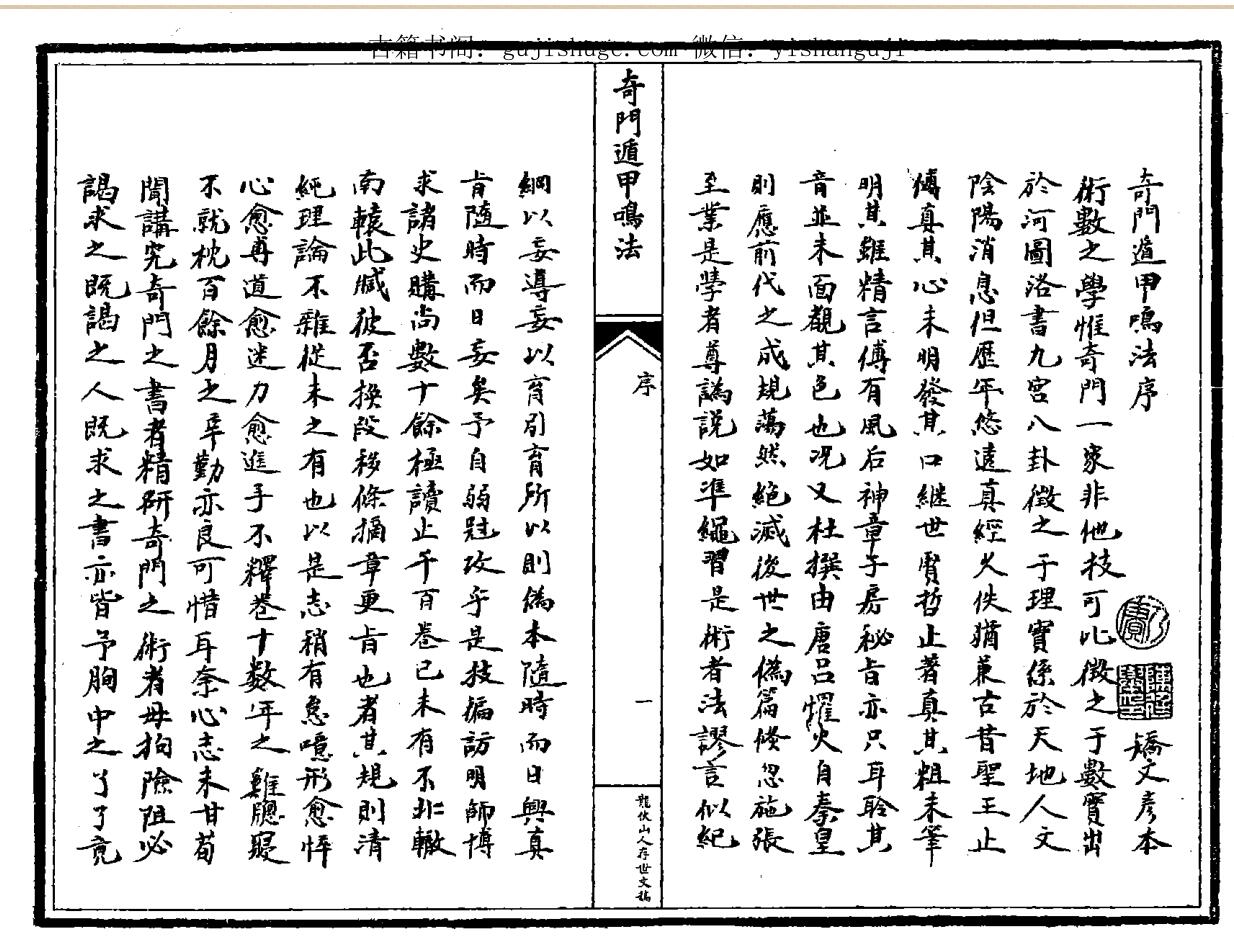 古籍书阁：gujishuge.com 微信：yishanguji
奇門遁甲鳴法序
矯文彥本
術數之學惟奇門一家非他技可比徵之于數實出
於河圖洛書九宮八卦徵之于理實係於天地人文
陰陽消息但歷年悠遠真經久佚猶兼古昔聖王止
傳真其心未明發其口継世賢哲止著真其粗未筆
明其雖精言傳有風后神章子房秘旨亦只耳聆其
音並未面觀其色也况又杜撰由唐呂懼火自秦皇
則應前代之成規蕩然絕滅後世之偽篇倏忽施張
至業是學者尊譌説如準繩習是術者法謬言似紀
奇門遁甲鳴法
序
一
龍伏山人存世文稿
綱以妄導妄以盲引盲所以則偽本隨時而日興真
旨隨時而日妄矣予自弱冠攻乎是技徧訪明師博
求諸史購尚數十餘極讀止千百卷已未有不北轍
南轅此臧彼否換段移條摘章更旨也者其規則清
純理論不雜從未之有也以是志稍有怠噫形愈悴
心愈専道愈迷力愈進手不釋卷十数年之雞牕寢
不就枕百餘月之辛勤亦良可惜耳奈心志未甘苟
聞講究奇門之書者精研奇門之術者毋拘險阻必
謁求之既謁之人既求之書亦皆予胸中之了了竟